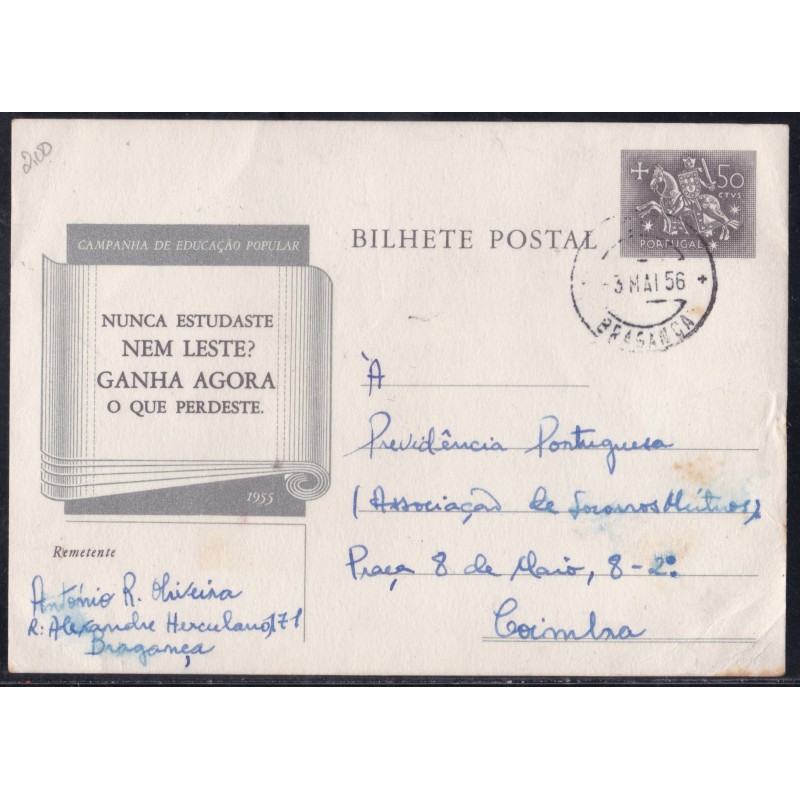 2,00
50
CTVS
PORTUGAL
BILHETE POSTAL
-3 MAI 56
BRAGANÇA
CAMPANHA DE EDUCAÇÃO POPULAR
NUNCA ESTUDASTE
NEM LESTE?
GANHA AGORA
O QUE PERDESTE.
1955
À
Previdência Portuguesa
(Associação de Socorros Mútuos)
Praça 8 de Maio, 8-2º
Coimbra
Remetente
António R. Oliveira
R: Alexandre Herculano, 171
Bragança